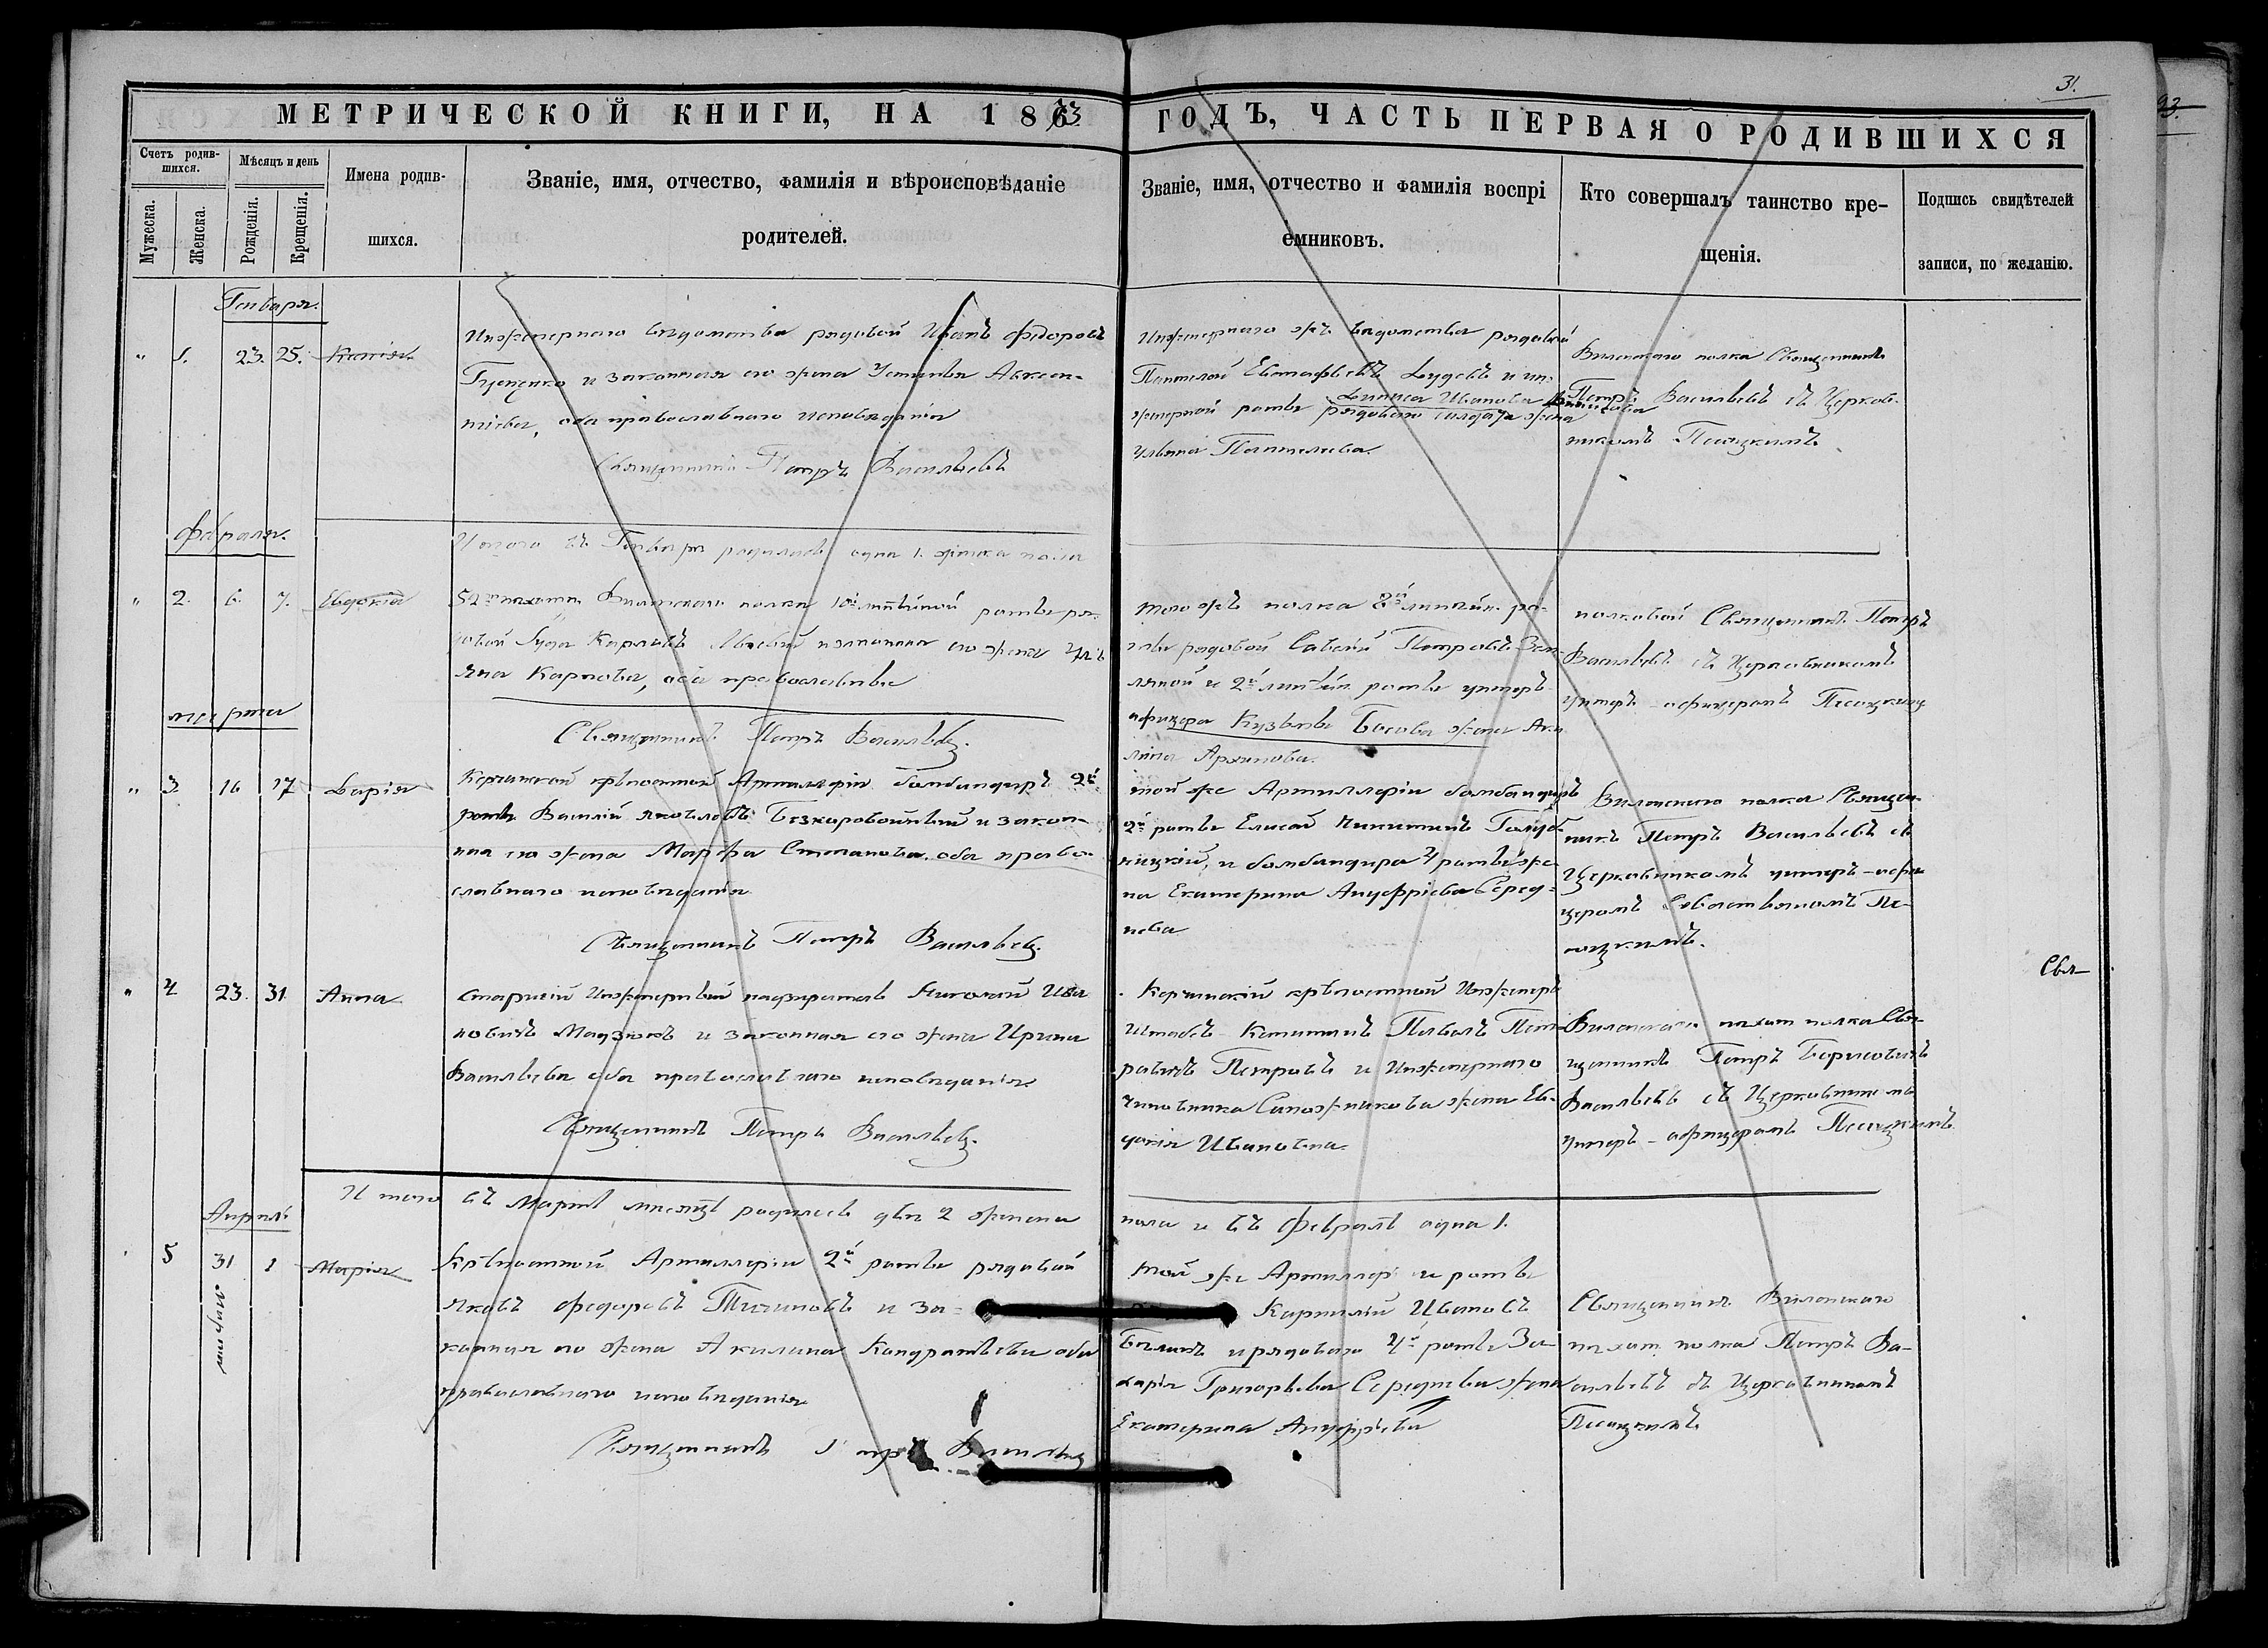 31.
93.
МЕТРИЧЕСКОЙ КНИГИ, НА 1873 ГОДЪ, ЧАСТЬ ПЕРВАЯ О РОДИВШИХСЯ
Счетъ родив-
шихся.
Мужеска.
Женска.
Мѣсяцъ и день
Рожденія.
Крещенія.
Имена родив-
шихся.
Званіе, имя, отчество, фамилія и вѣроисповѣданіе
родителей.
Званіе, имя, отчество и фамилія воспрі
емниковъ.
Кто совершалъ таинство кре-
щенія.
Подпись свидѣтелей
записи, по желанію.
Генваря.
" 1. 23. 25. Ксенія
Инженернаго вѣдомства рядовой Иванъ Федоровъ
и законная его жена Устинья Авксен-
тіева, оба православнаго исповѣданія
Священникъ Петръ Васильевъ
Инженернаго жъ вѣдомства рядовой
Евстафьевъ и ин-
Иванова
женерной роты рядоваго солдата жена
Ульяна Пантелиева.
Виленскаго полка Священникъ
Петръ Васильевъ съ Церков-
никомъ Песоцкимъ
Итого въ Генварѣ родилась одна 1. женска пола
Февраля.
" 2. 6. 7. Евдокія
52 пѣхотн. Виленскаго полка 10й линѣйной роты ря-
довой Карповъ и законная его жена Уль
яна Карпова, оба православные
Священникъ Петръ Васильевъ.
того жъ полка 8й линѣйн. ро-
ты рядовой Савелій Петровъ Зем-
ляной и 2й линѣйн. роты унтеръ
офицера Кузьмы Басова жена Аку
лина Архипова.
полковой Священникъ Петръ
Васильевъ съ Церковникомъ
унтеръ-офицеромъ Песоцким
марта
" 3. 16 17 Дарія
Керченской крѣпостной Артиллеріи бомбандиръ 2й
роты Василій Яковлевъ Безкоровойный и закон-
ная его жена Марфа Степанова оба право-
славнаго исповѣданія
Священникъ Петръ Васильевъ.
той же Артиллеріи бомбандиръ
2й роты Елисей Никитинъ Голуб-
ницкій, и бомбандира 4 роты же-
на Екатерина Ануфріева Серед-
нева
Виленскаго полка Священ-
никъ Петръ Васильевъ съ
Церковникомъ унтеръ-офи
церомъ Севостьяномъ Пе-
соцкимъ.
" 4 23. 31 Анна
старшій Инженерный надзиратель Николай Ива
новичъ Мадзюкъ и законная его жена Ирина
Васильева оба православнаго исповѣданія
Священникъ Петръ Васильевъ.
Керченскій крѣпостной Инженеръ
Штабсъ-Капитанъ Павелъ Пет-
ровичъ Петровъ и Инженернаго
чиновника Сапожникова жена Ев-
докія Ивановна.
Виленскаго пѣхот полка Свя-
щенникъ Петръ Борисовичъ
Васильевъ съ Церковникомъ
унтеръ-офицеромъ Песоцкимъ
Свя
Итого въ Мартѣ мѣсяцѣ родилось двѣ 2 женска пола и въ Февралѣ одна 1.
Апрѣль
5 31 1 Марія
марта
Крѣпостной Артиллеріи 2й роты рядовой
Яковъ Федоровъ Тичиновъ и за-
конная его жена Акилина Кондратьева оба
православнаго исповѣданія
Священникъ Петръ Васильевъ
той же Артиллеріи роты
Иванов
и рядоваго 4й роты За-
харія Григорьева Середнева жена
Екатерина Ануфріева
Священникъ Виленскаго
пѣхот. полка Петръ Ва-
сильевъ съ Церковникомъ
Песоцкимъ